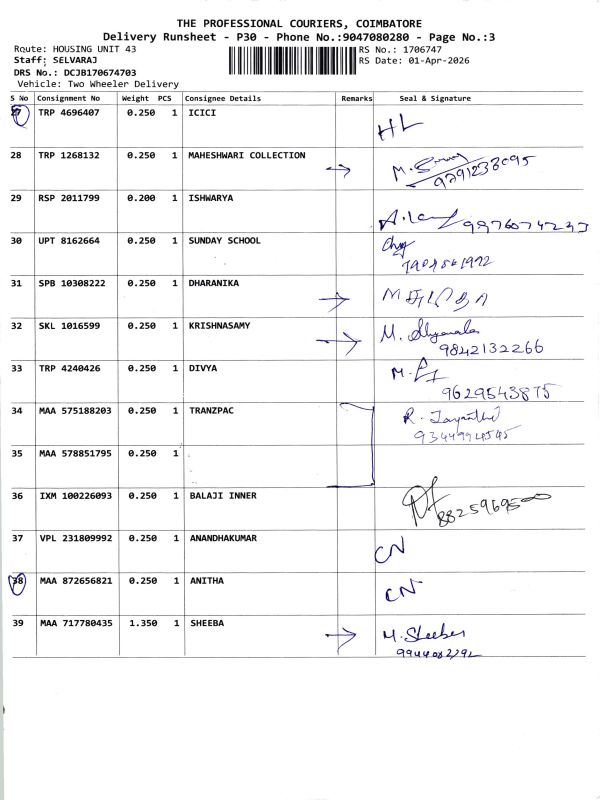 THE PROFESSIONAL COURIERS, COIMBATORE
Delivery Runsheet - P30 - Phone No.:9047080280 - Page No.:3
Route: HOUSING UNIT 43 RS No.: 1706747
Staff: SELVARAJ RS Date: 01-Apr-2026
DRS No.: DCJB170674703
Vehicle: Two Wheeler Delivery
S No Consignment No Weight PCS Consignee Details Remarks Seal & Signature
TRP 4696407 0.250 1 ICICI HL
28 TRP 1268132 0.250 1 MAHESHWARI COLLECTION M.
29 RSP 2011799 0.200 1 ISHWARYA
30 UPT 8162664 0.250 1 SUNDAY SCHOOL
31 SPB 10308222 0.250 1 DHARANIKA
32 SKL 1016599 0.250 1 KRISHNASAMY M. Shyamala
9842132266
33 TRP 4240426 0.250 1 DIVYA M.
9629543875
34 MAA 575188203 0.250 1 TRANZPAC R. Jayanthi
35 MAA 578851795 0.250 1
36 IXM 100226093 0.250 1 BALAJI INNER
37 VPL 231809992 0.250 1 ANANDHAKUMAR CN
38 MAA 872656821 0.250 1 ANITHA CN
39 MAA 717780435 1.350 1 SHEEBA M. Sheeba